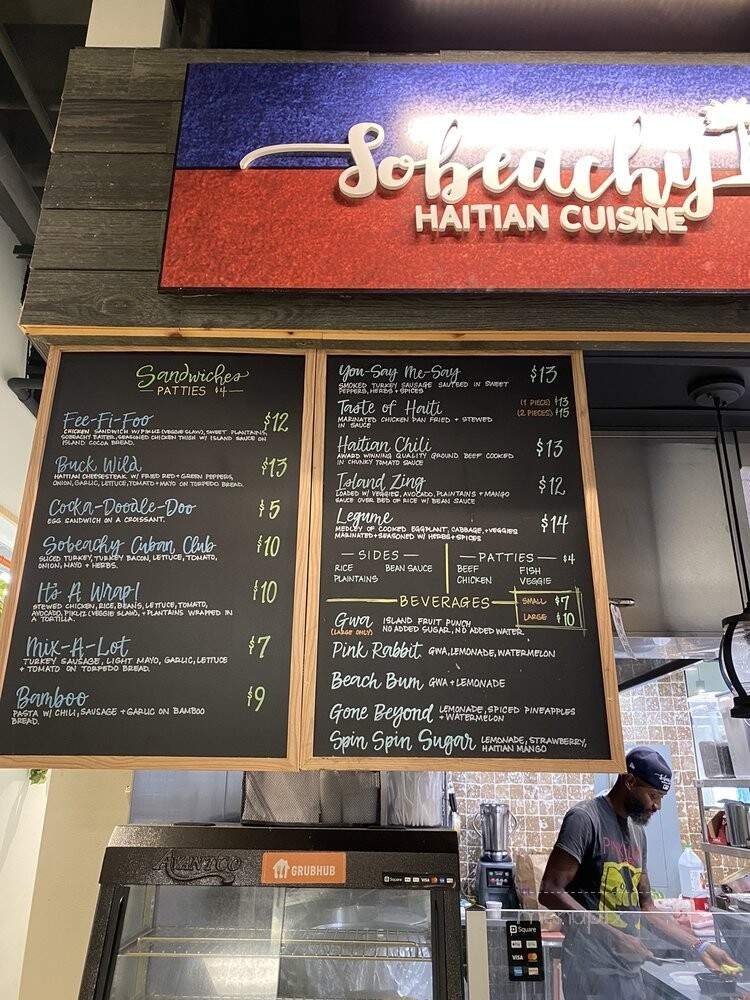 Sobeachy
HAITIAN CUISINE
Sandwiches
PATTIES $4
Fee-Fi-Foo $12
CHICKEN SANDWICH W/ PIKLIZ (VEGGIE SLAW), SWEET PLANTAINS,
SOBEACHY BATTER, SEASONED CHICKEN THIGH W/ ISLAND SAUCE ON
ISLAND COCOA BREAD.
Buck Wild $13
HAITIAN CHEESESTEAK W/ FRIED RED + GREEN PEPPERS,
ONION, GARLIC, LETTUCE, TOMATO + MAYO ON TORPEDO BREAD.
Cocka-Doodle-Doo $5
EGG SANDWICH ON A CROISSANT.
Sobeachy Cuban Club $10
SLICED TURKEY, TURKEY BACON, LETTUCE, TOMATO,
ONION, MAYO + HERBS.
It's A Wrap! $10
STEWED CHICKEN, RICE, BEANS, LETTUCE, TOMATO,
AVOCADO, PIKLIZ (VEGGIE SLAW), + PLANTAINS WRAPPED IN
A TORTILLA.
Mix-A-Lot $7
TURKEY SAUSAGE, LIGHT MAYO, GARLIC, LETTUCE
+ TOMATO ON TORPEDO BREAD.
Bamboo $9
PASTA W/ CHILI, SAUSAGE + GARLIC ON BAMBOO
BREAD.
You-Say Me-Say $13
SMOKED TURKEY SAUSAGE SAUTEED IN SWEET
PEPPERS, HERBS + SPICES
Taste of Haiti (1 PIECE) $13
(2 PIECES) $15
MARINATED CHICKEN PAN FRIED + STEWED
IN SAUCE
Haitian Chili $13
AWARD WINNING QUALITY GROUND BEEF COOKED
IN CHUNKY TOMATO SAUCE
Island Zing $12
LOADED W/ VEGGIES, AVOCADO, PLANTAINS + MANGO
SAUCE OVER BED OF RICE W/ BEAN SAUCE
Legume $14
MEDLEY OF COOKED EGGPLANT, CABBAGE, + VEGGIES
MARINATED + SEASONED W/ HERBS + SPICES
SIDES
RICE BEAN SAUCE
PLANTAINS
PATTIES $4
BEEF FISH
CHICKEN VEGGIE
BEVERAGES
SMALL $7
LARGE $10
Gwa ISLAND FRUIT PUNCH
(LARGE ONLY) NO ADDED SUGAR, NO ADDED WATER.
Pink Rabbit GWA, LEMONADE, WATERMELON
Beach Bum GWA + LEMONADE
Gone Beyond LEMONADE, SPICED PINEAPPLES
+ WATERMELON
Spin Spin Sugar LEMONADE, STRAWBERRY,
HAITIAN MANGO
AVANTCO
GRUBHUB
Square VISA
Square
VISA